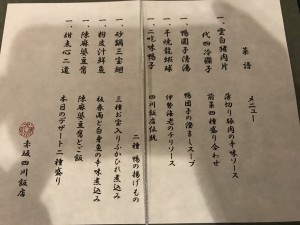 菜譜
メニュー
一、雲白猪肉片
薄切り豚肉の辛味ソース
代四冷碟子
前菜四種盛り合わせ
一、鴨圓子清湯
鴨団子の澄ましスープ
一、干焼龍蝦球
伊勢海老のチリソース
一、二吃味鴨子
四川飯店伝統
二種 鴨の揚げもの
一、砂鍋三宝翅
三種お宝入りふかひれ煮込み
一、粉皮汁鮮魚
板春雨と白身魚の辛味煮込み
一、陳麻婆豆腐
陳麻婆豆腐とご飯
一、甜点心二道
本日のデザート二種盛り
赤坂 四川飯店